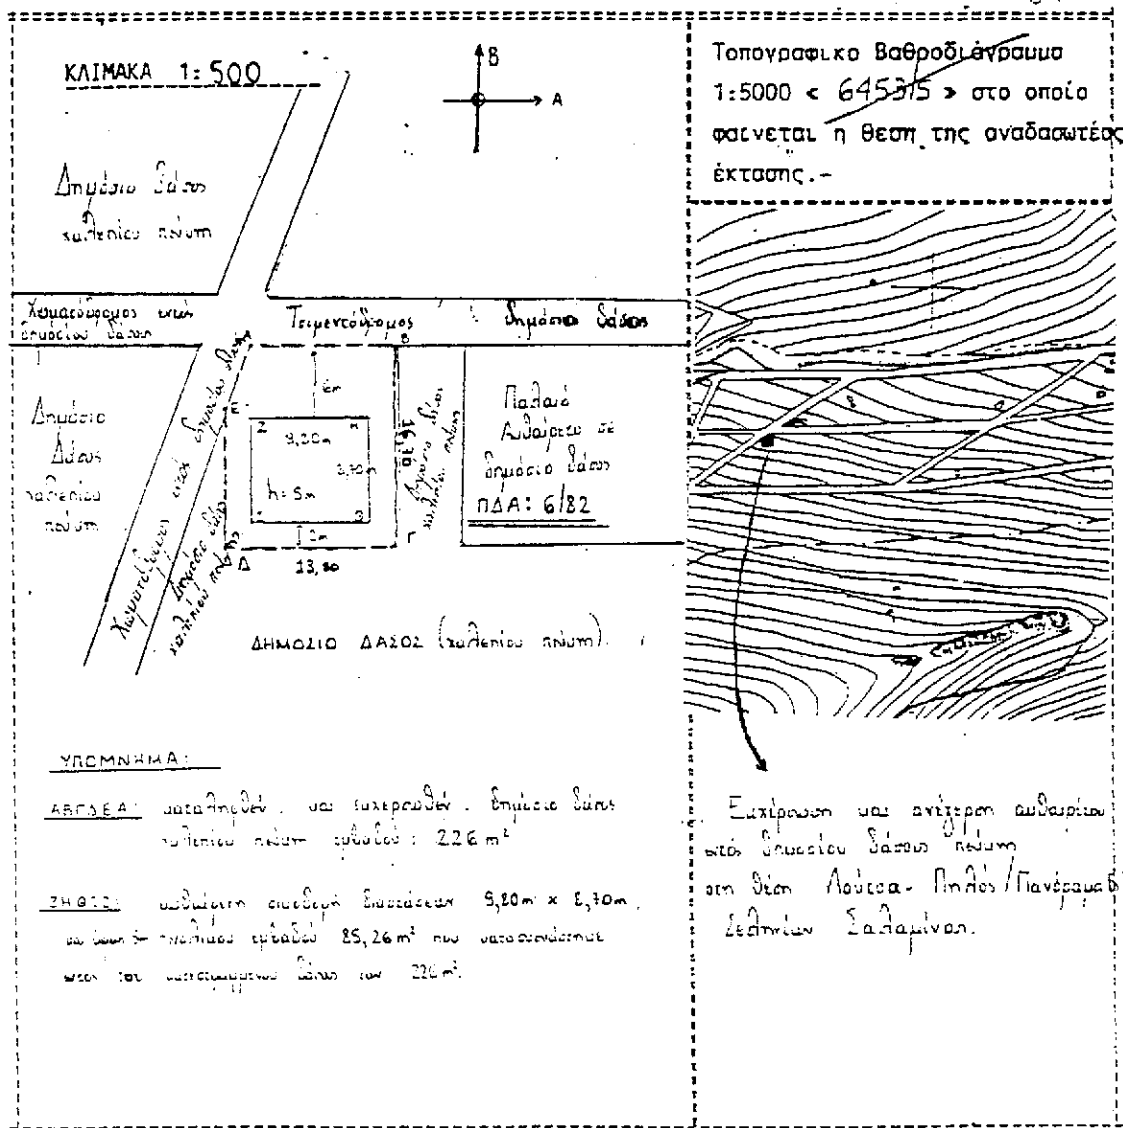 ΚΛΙΜΑΚΑ 1:500
Β
Α
Δημόσιο δάσος
χαλεπίου πεύκη
Χωματόδρομος εντός
δημόσιου δάσους
Τσιμεντόδρομος
δημόσιο δάσος
Β
6m
Ε
Δημόσιο
Δάσος
χαλεπίου
πεύκη
Χωματόδρομος εντός δημοσίου δάσους
Δημόσιο δάσος
χαλεπίου πεύκη
Ζ
Η
9,20m
8,70m
h=5m
Ι
Θ
2m
16,30
Δημόσιο δάσος
χαλεπίου πεύκη
Παλαιό
Αυθαίρετο σε
δημόσιο δάσος
ΠΔΑ: 6/82
Δ
13,80
Γ
ΔΗΜΟΣΙΟ ΔΑΣΟΣ (χαλεπίου πεύκη).
ΥΠΟΜΝΗΜΑ:
ΑΒΓΔΕΑ: καταληφθέν. και εκχερσωθέν. δημόσιο δάσος
χαλεπίου πεύκη εμβαδού: 226 m²
ΖΗΘΙΖ: αυθαίρετη οικοδομή διαστάσεων 9,80m x 8,70m,
εμβαδού 85,26 m² που κατασκευάστηκε
εντός του δάσους των 226 m².
Τοπογραφικο Βαθροδιάγραμμα
1:5000 < 6453/5 > στο οποίο
φαινεται η θεση της αναδασωτέας
έκτασης.-
Εκχέρσωση και ανέγερση αυθαιρέτου
εντός δημοσίου δάσους πεύκη
στη θέση Λούτσα - Πηλός/Πανόραμα
Σεληνίων Σαλαμίνας.